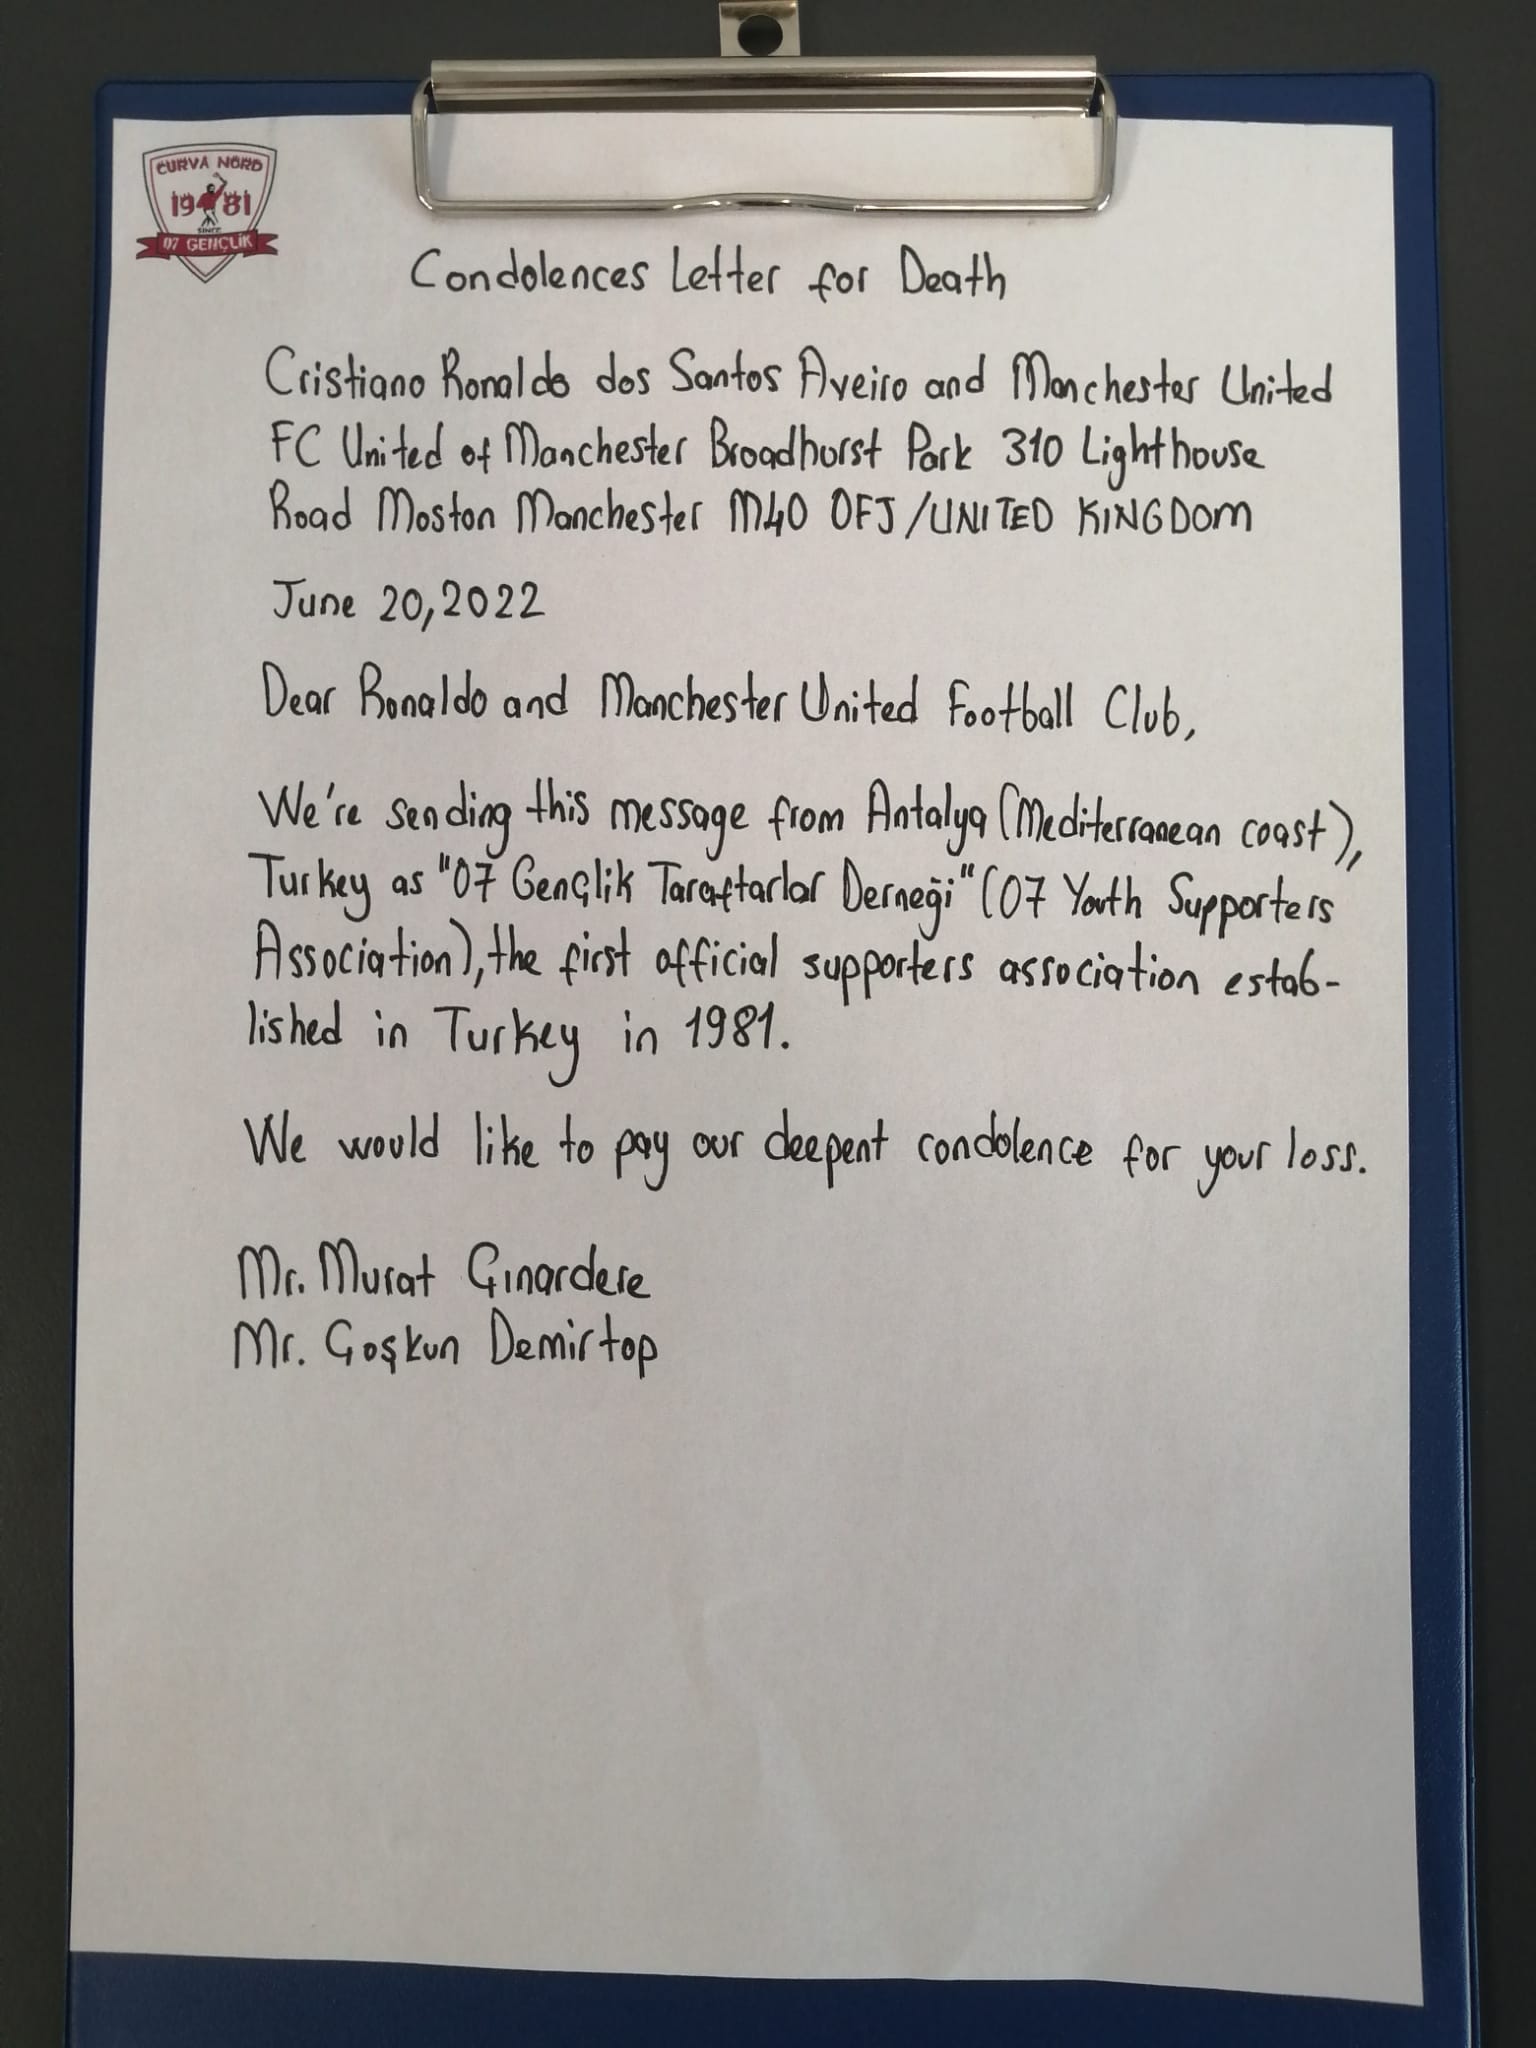 CURVA NORD
1981
SINCE
07 GENÇLİK
Condolences Letter for Death
Cristiano Ronaldo dos Santos Aveiro and Manchester United
FC United of Manchester Broadhurst Park 310 Lighthouse
Road Moston Manchester M40 0FJ/UNITED KINGDOM
June 20,2022
Dear Ronaldo and Manchester United Football Club,
We're sending this message from Antalya (Mediterranean coast),
Turkey as "07 Gençlik Taraftarlar Derneği" (07 Youth Supporters
Association), the first official supporters association estab-
lished in Turkey in 1981.
We would like to pay our deepent condolence for your loss.
Mr. Murat Çınardere
Mr. Coşkun Demirtop